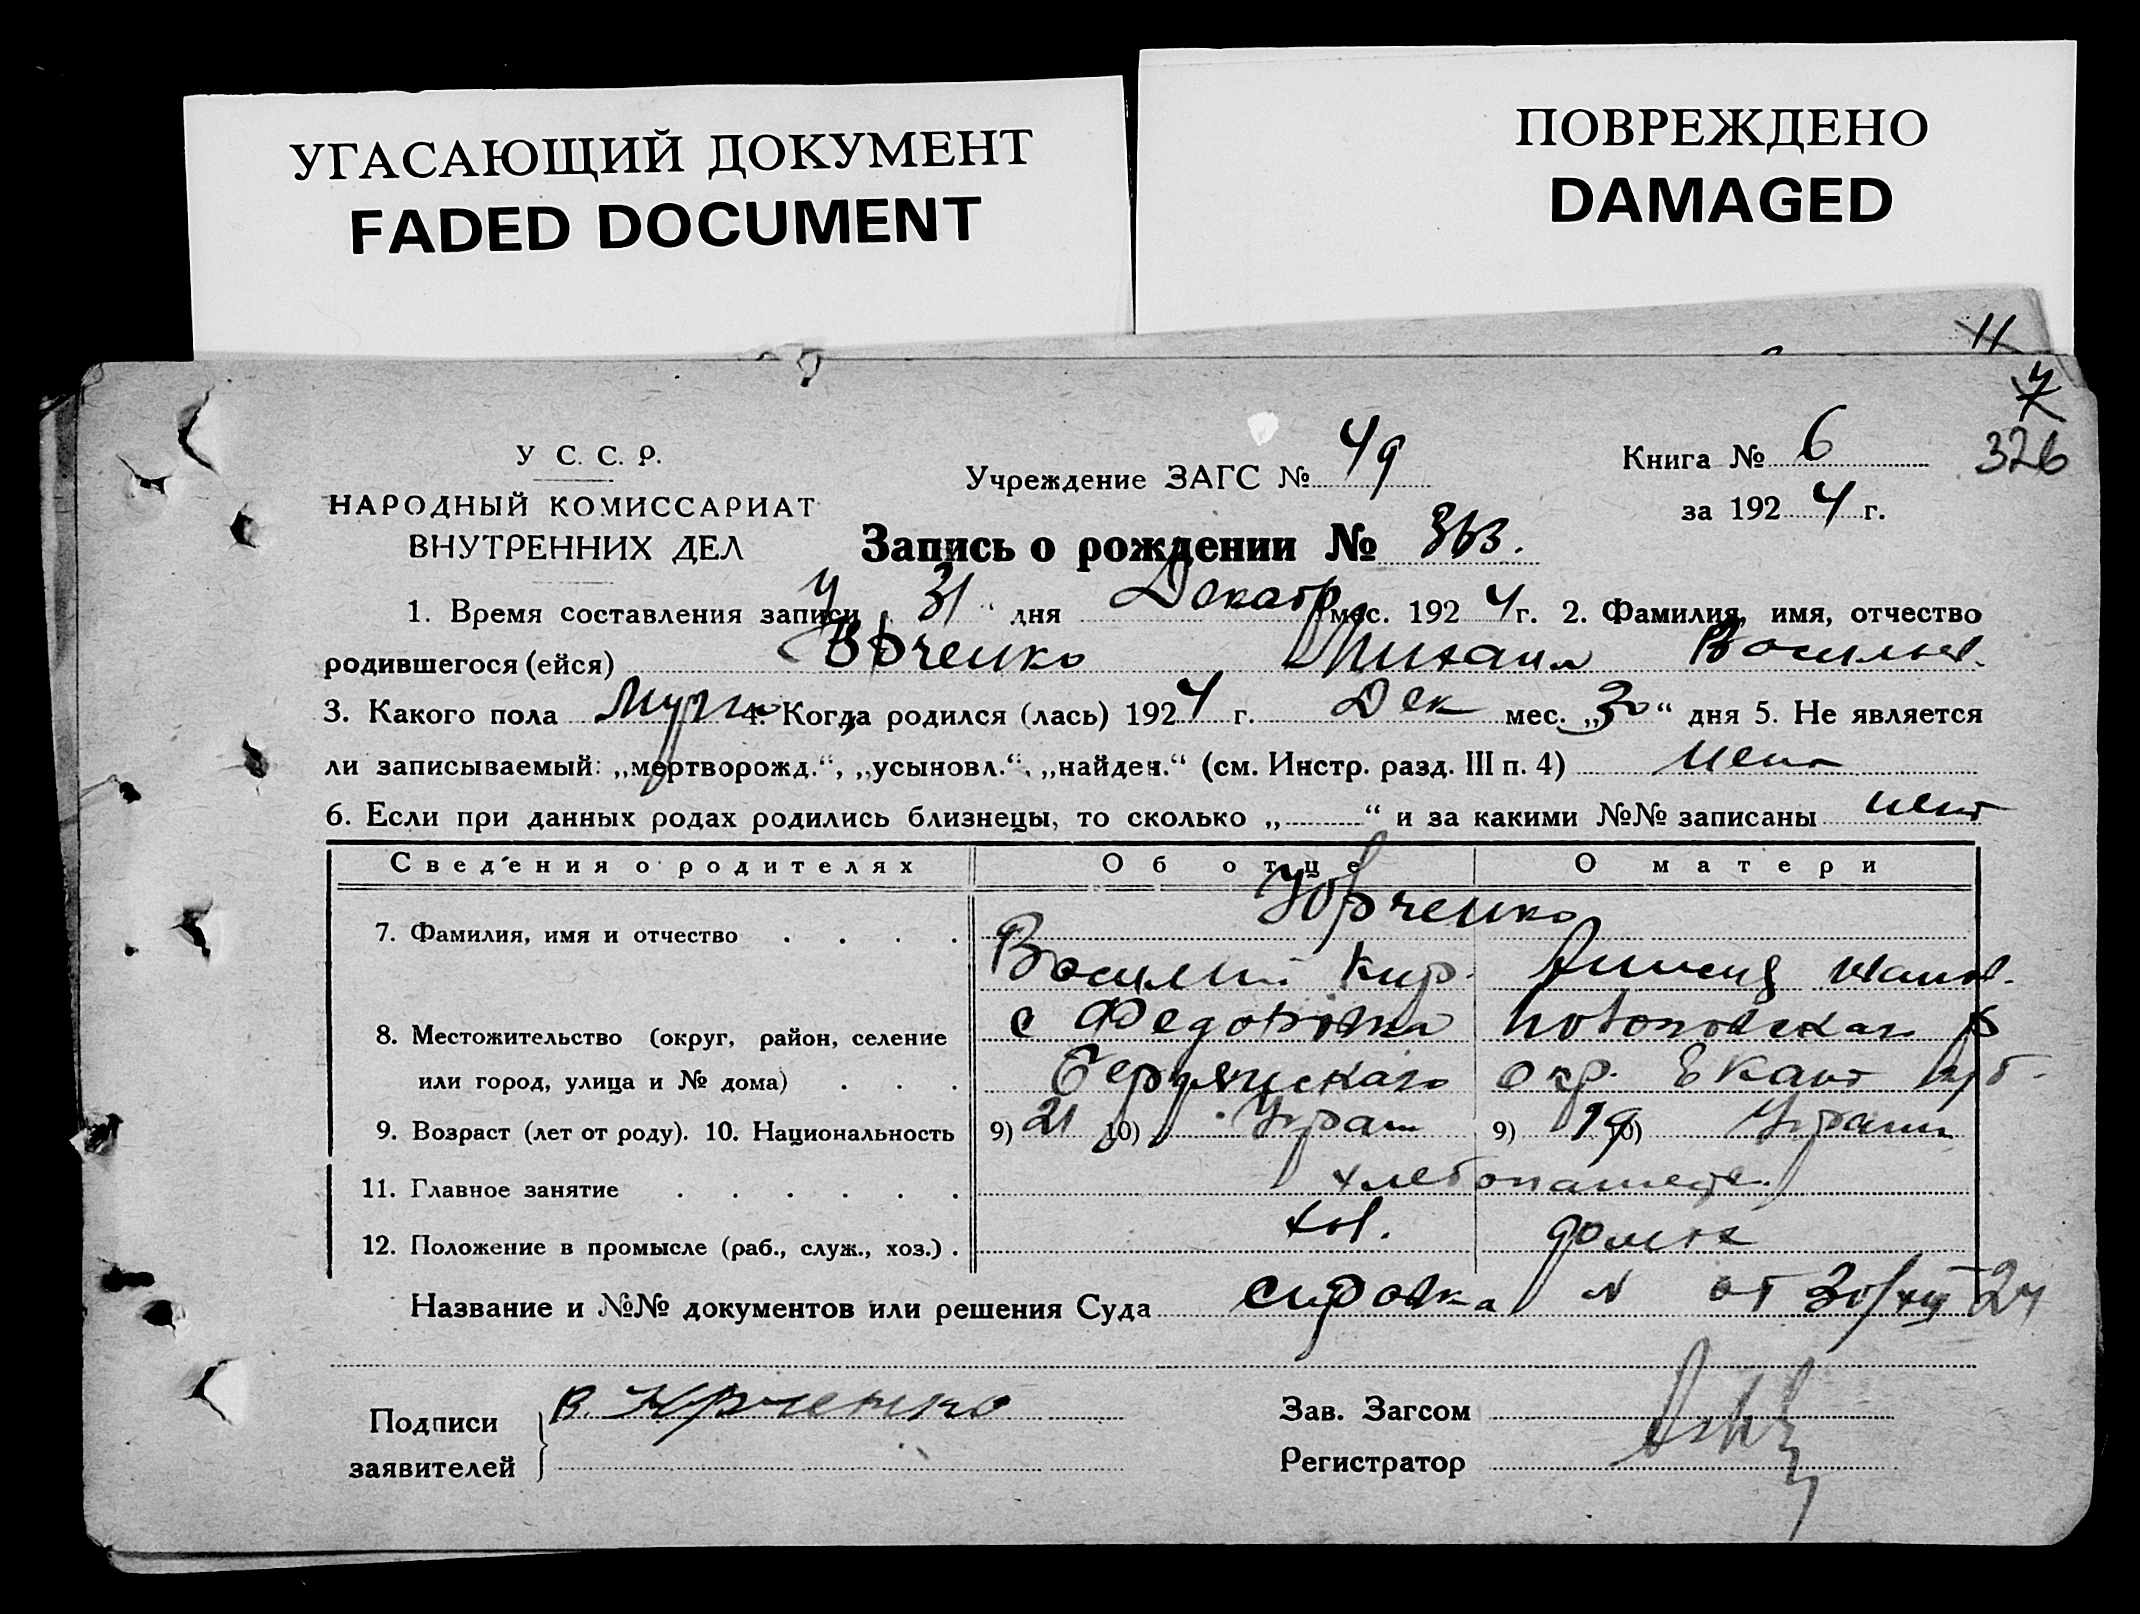 УГАСАЮЩИЙ ДОКУМЕНТ
FADED DOCUMENT
ПОВРЕЖДЕНО
DAMAGED
11
326
У С. С. Р.
НАРОДНЫЙ КОМИССАРИАТ
ВНУТРЕННИХ ДЕЛ
Учреждение ЗАГС № 49
Книга № 6
за 1924 г.
Запись о рождении №
1. Время составления записи 31 " дня Декабр мес. 1924 г. 2. Фамилия, имя, отчество
родившегося (ейся) Юрченко Михаил Васильев.
3. Какого пола Мужск 4. Когда родился (лась) 1924 г. Дек мес. „30" дня 5. Не является
ли записываемый: „мертворожд.", „усыновл.", „найден." (см. Инстр. разд. III п. 4) нет
6. Если при данных родах родились близнецы, то сколько „ " и за какими №№ записаны нет
Сведения о родителях Об отце О матери
Юрченко
7. Фамилия, имя и отчество Василий Кир.
8. Местожительство (округ, район, селение с Федоровка
или город, улица и № дома) Бердянскаго окр. Екат губ.
9. Возраст (лет от роду). 10. Национальность 9) 21 10) Украин 9) 19 10) Украин
11. Главное занятие хлебопашеств
12. Положение в промысле (раб., служ., хоз.) домох
Название и №№ документов или решения Суда справка № от 30/XII 24
Подписи
заявителей
В. Юрченко
Зав. Загсом
Регистратор